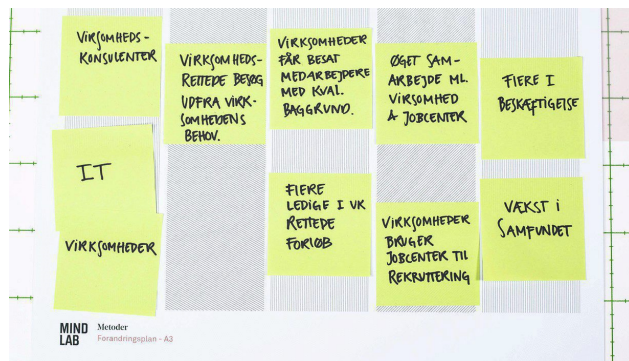 VIRSOMHEDS-
KONSULENTER
IT
VIRKSOMHEDER
VIRKSOMHEDS-
RETTEDE BESØG
UDFRA VIRK-
SOMHEDENS
BEHOV.
VIRKSOMHEDER
FÅR BESAT
MEDARBEJDERE
MED KVAL.
BAGGRUND.
FLERE
LEDIGE I VK
RETTEDE
FORLØB
ØGET SAM-
ARBEJDE ML.
VIRSOMHED
& JOBCENTER
VIRKSOMHEDER
BRUGER
JOBCENTER TIL
REKRUTTERING
FLERE I
BESKÆFTIGELSE
VÆKST i
SAMFUNDET
MIND
LAB
Metoder
Forandringsplan - A3